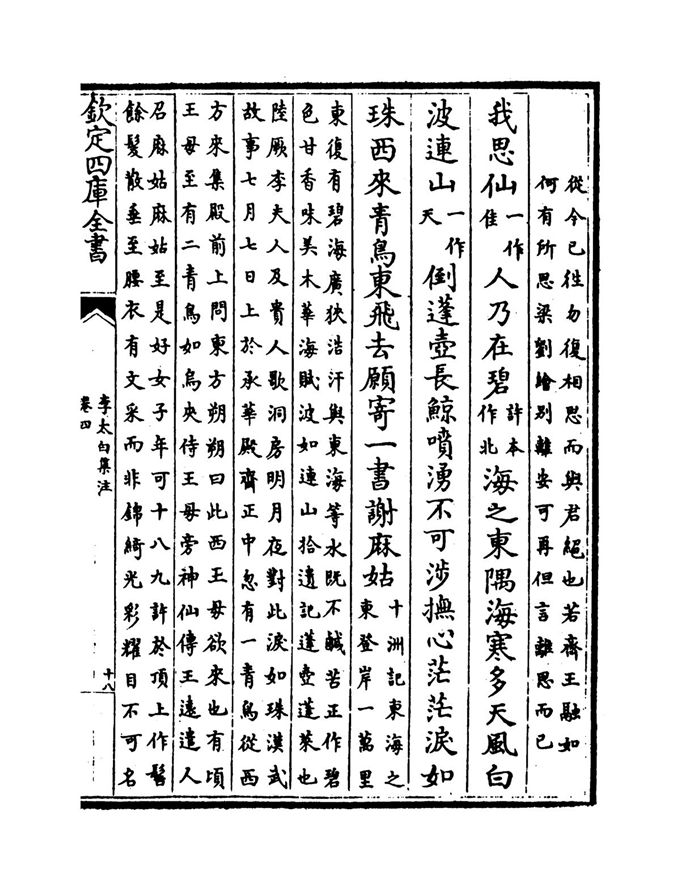 從今已徃勿復相思而與君絕也若齊王融如
何有所思梁劉繪别離安可再但言離思而已
我思仙一作佳人乃在碧許本作北海之東隅海寒多天風白
波連山一作天倒蓬壺長鯨噴湧不可涉撫心茫茫淚如
珠西來青鳥東飛去願寄一書謝麻姑十洲記東海之東登岸一萬里
東復有碧海廣狹浩汗與東海等水既不鹹苦正作碧
色甘香味美木華海賦波如連山拾遺記蓬壺蓬萊也
陸厥李夫人及貴人歌洞房明月夜對此淚如珠漢武
故事七月七日上於承華殿齊正中忽有一青鳥從西
方來集殿前上問東方朔朔曰此西王母欲來也有頃
王母至有二青鳥如烏夾侍王母旁神仙傳王遠遣人
召麻姑麻姑至是好女子年可十八九許於頂上作髻
餘髮散垂至腰衣有文采而非錦綺光彩耀目不可名
欽定四庫全書
李太白集注
卷四
十八